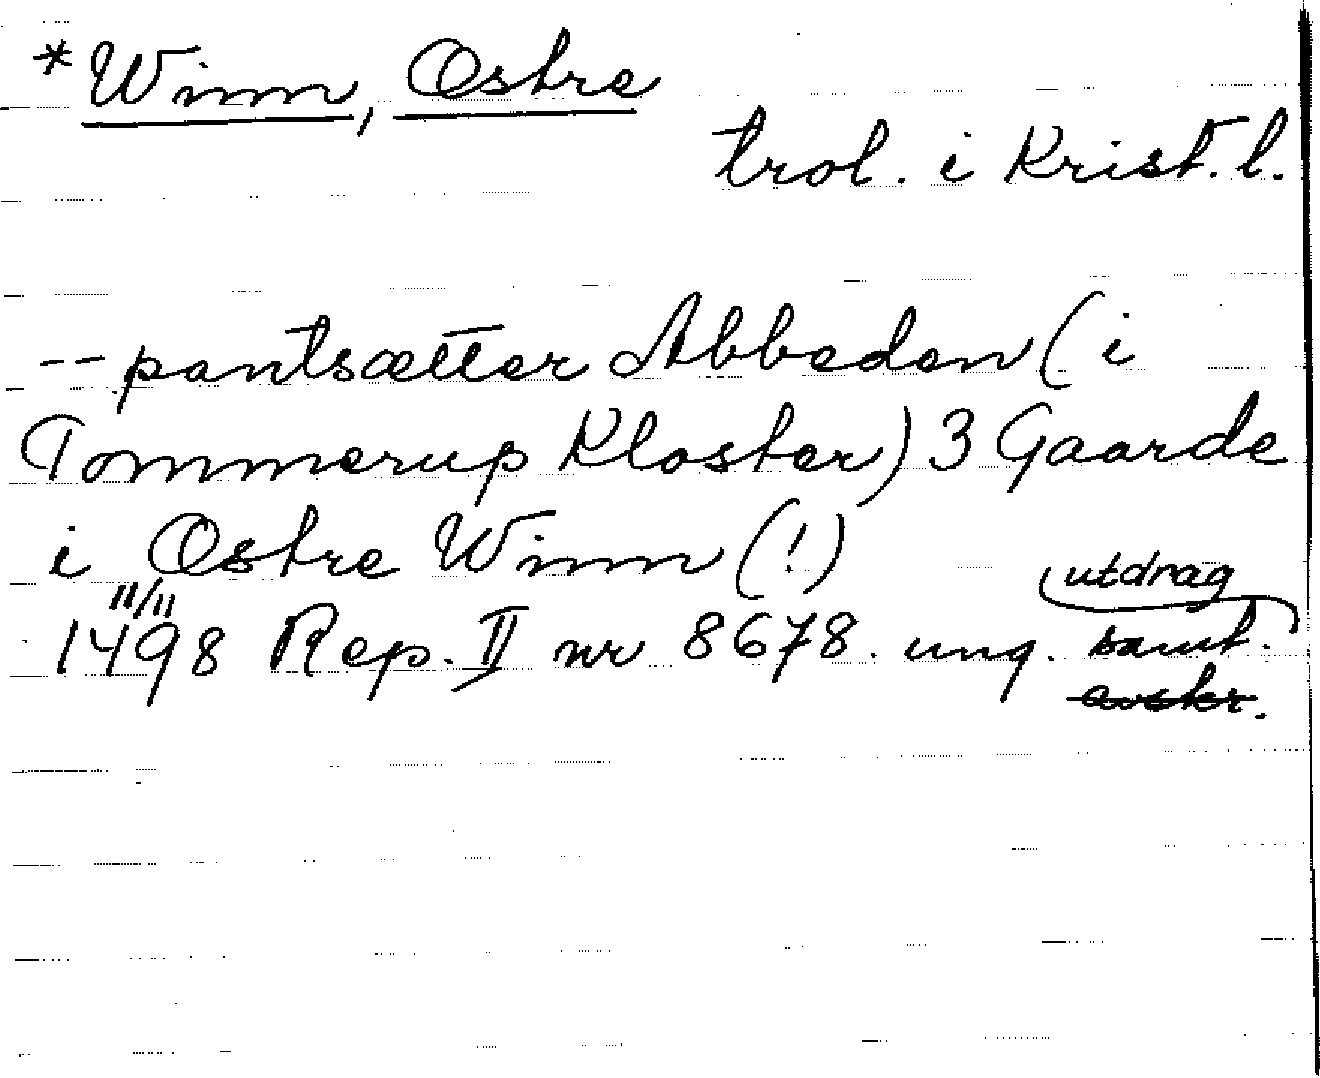 *Winn, Ostre
trol. i Krist. l.
-- pantsætter Abbeden (i
Tommerup Kloster) 3 Gaarde
i Ostre Winn (!)
11/11
utdrag
1498 Rep. II nr 8678. ung. samt.
avskr.